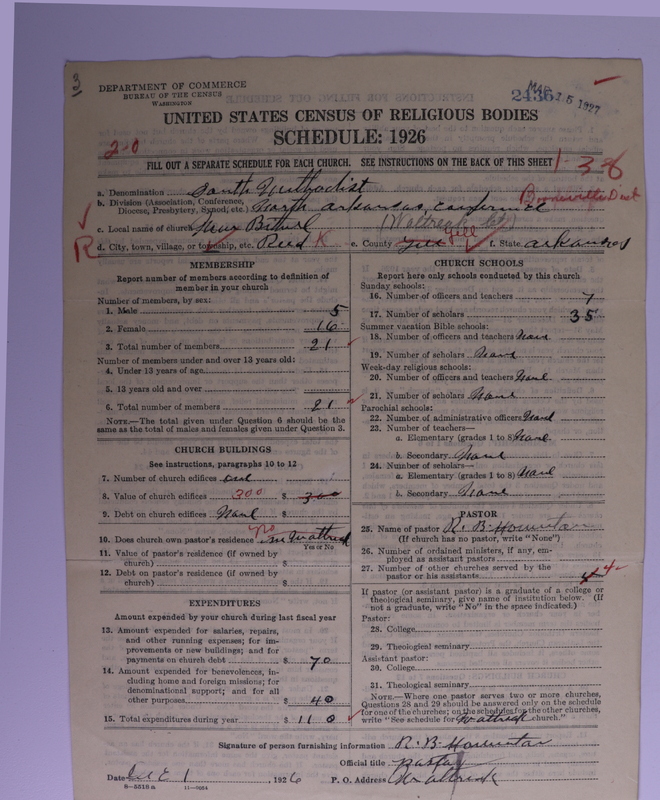 3
DEPARTMENT OF COMMERCE
BUREAU OF THE CENSUS
WASHINGTON
2436
MAR 15 1927
UNITED STATES CENSUS OF RELIGIOUS BODIES
SCHEDULE: 1926
20
FILL OUT A SEPARATE SCHEDULE FOR EACH CHURCH. SEE INSTRUCTIONS ON THE BACK OF THIS SHEET
1-38
a. Denomination South Methodist
b. Division (Association, Conference, Diocese, Presbytery, Synod, etc.) North Arkansas, Conference
Booneville Dist
c. Local name of church New Bethel (Waltreak Ct)
R
d. City, town, village, or township, etc. R e. County Yell Yell f. State Arkansas
MEMBERSHIP
Report number of members according to definition of
member in your church
Number of members, by sex:
1. Male 5
2. Female 16
3. Total number of members 21
Number of members under and over 13 years old:
4. Under 13 years of age
5. 13 years old and over
6. Total number of members 21
NOTE.—The total given under Question 6 should be the
same as the total of males and females given under Question 3.
CHURCH BUILDINGS
See instructions, paragraphs 10 to 12
7. Number of church edifices one
8. Value of church edifices 300 $ 300
9. Debt on church edifices None $
10. Does church own pastor's residence no in Waltreak
Yes or No
11. Value of pastor's residence (if owned by
church) $
12. Debt on pastor's residence (if owned by
church) $
EXPENDITURES
Amount expended by your church during last fiscal year
13. Amount expended for salaries, repairs,
and other running expenses; for im-
provements or new buildings; and for
payments on church debt $ 70
14. Amount expended for benevolences, in-
cluding home and foreign missions; for
denominational support; and for all
other purposes $ 40
15. Total expenditures during year $ 110
CHURCH SCHOOLS
Report here only schools conducted by this church
Sunday schools:
16. Number of officers and teachers 7
17. Number of scholars 35
Summer vacation Bible schools:
18. Number of officers and teachers None
19. Number of scholars None
Week-day religious schools:
20. Number of officers and teachers None
21. Number of scholars None
Parochial schools:
22. Number of administrative officers None
23. Number of teachers—
a. Elementary (grades 1 to 8) None
b. Secondary None
24. Number of scholars—
a. Elementary (grades 1 to 8) None
b. Secondary None
PASTOR
25. Name of pastor R. B.
(If church has no pastor, write "None")
26. Number of ordained ministers, if any, em-
ployed as assistant pastors
27. Number of other churches served by the
pastor or his assistants 4
If pastor (or assistant pastor) is a graduate of a college or
theological seminary, give name of institution below. (If
not a graduate, write "No" in the space indicated.)
Pastor:
28. College
29. Theological seminary
Assistant pastor:
30. College
31. Theological seminary
NOTE.—Where one pastor serves two or more churches,
Questions 28 and 29 should be answered only on the schedule
for one of the churches; on the schedules for the other churches,
write "See schedule for Waltreak church."
Signature of person furnishing information R. B.
Official title Pastor
Date Dec 1, 1926 P. O. Address Waltreak
8-5518 a 11-9054